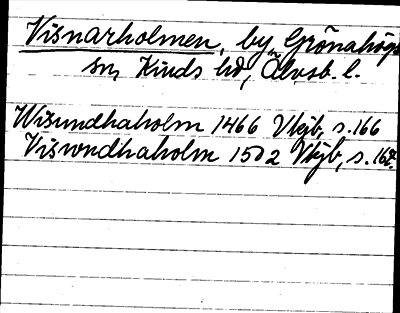 Visnarholmen, by, Grönahögs
sn, Kinds hd, Älvsb. l.
Wisundhaholm 1466 Vkjb, s. 166
Viswndhaholm 1502 Vkjb, s. 167.